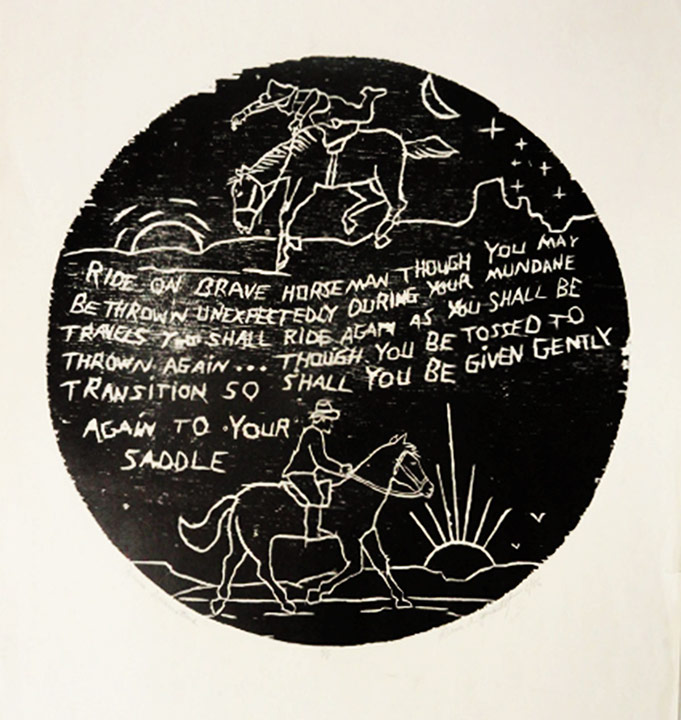 RIDE ON BRAVE HORSEMAN THOUGH YOU MAY
BE THROWN UNEXPECTEDLY DURING YOUR MUNDANE
TRAVELS YOU SHALL RIDE AGAIN AS YOU SHALL BE
THROWN AGAIN... THOUGH YOU BE TOSSED TO
TRANSITION SO SHALL YOU BE GIVEN GENTLY
AGAIN TO YOUR
SADDLE